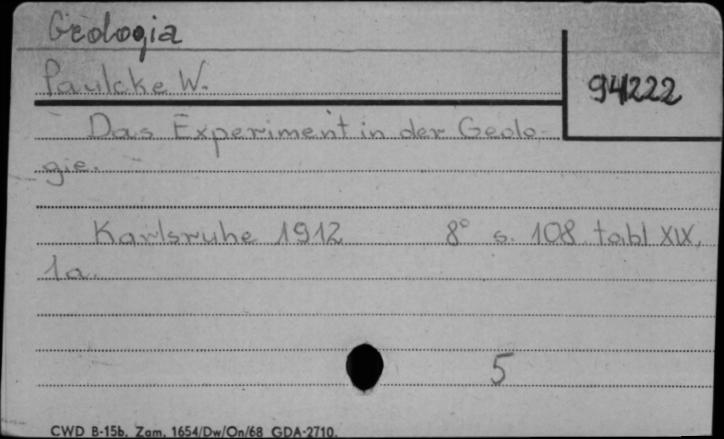 Geologia
Paulcke W.
941222
Das Experiment in der Geolo-
gie.
Karlsruhe 1912 8° s. 108 tabl XIX,
1a.
5
CWD B-15b. Zam. 1654/Dw/On/68 GDA-2710.